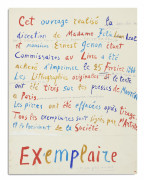 Cet ouvrage réalisé sous la
direction de Madame
et monsieur Ernest étant
Commissaires au Livre a été
achevé d'imprimer le 25 Février
Les Lithographies originales et le texte
ont été tirés sur les presses de Mourlot
à Paris
Les pierres ont été effacées après tirage.
Tous les exemplaires sont signés par l'Artiste
et le Président de la Société
EXemplaire